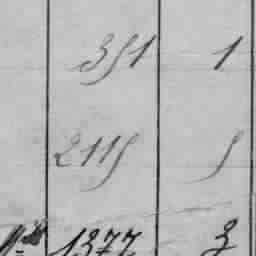 351 1
2115 5
1377 3